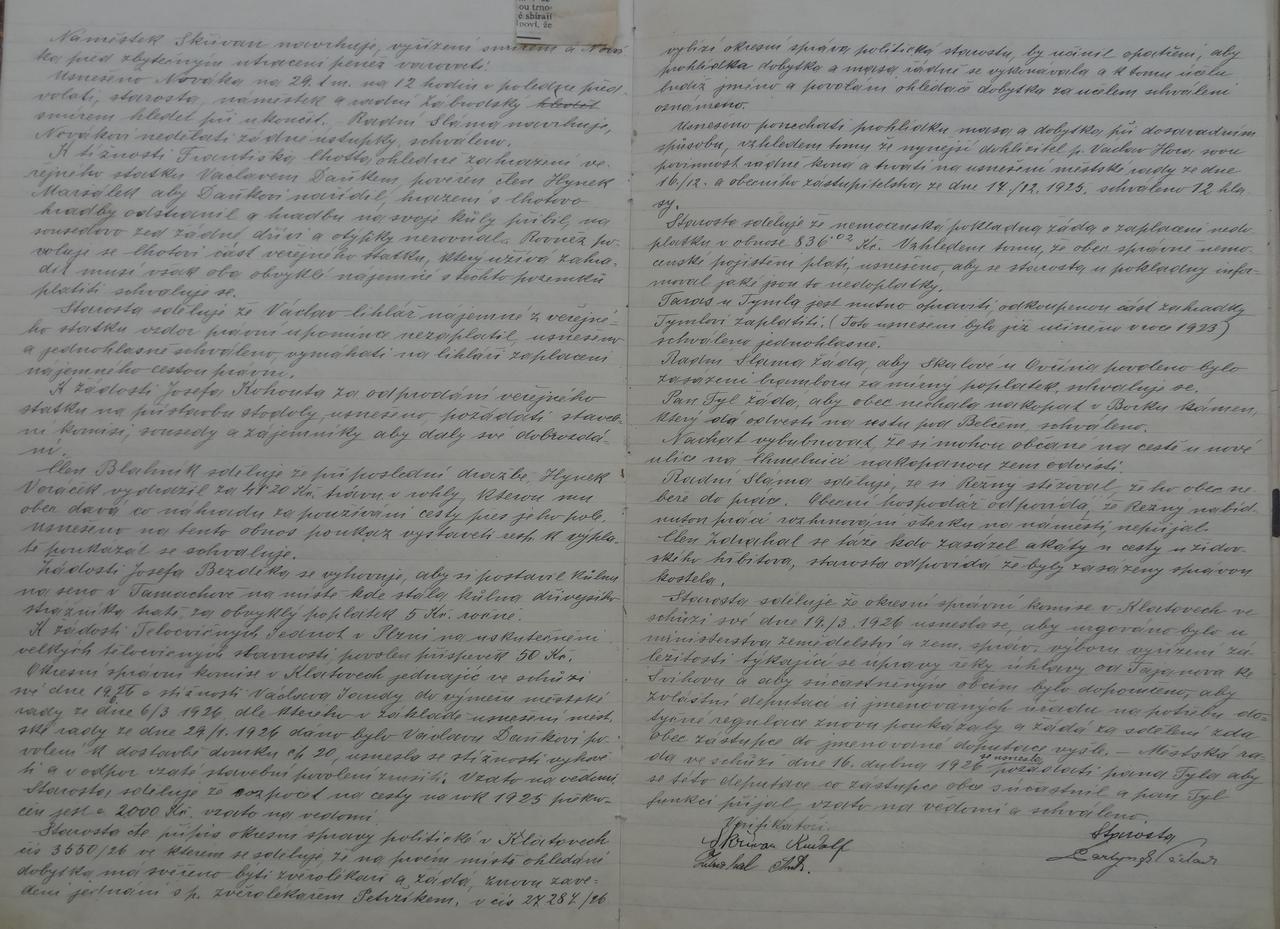 ou trno-
é sbírají
poví, že
Náměstek Skřivan navrhuje, vyřízení smírem a Nová-
ka před zbytečným utracení peněz varovati.
Usneseno Nováka na 29. t.m. na 12 hodin v poledne před-
volati, starosta, náměstek a radní Zábrodský
smírem hledět při ukončit. Radní Sláma navrhuje,
Novákovi nedělati žádné ústupky, schváleno.
K tížnosti Františka Lhotta, ohledně zahrazení ve-
řejného statku Václavem Daňkem, pověřen člen Hynek
Maršálek aby Daňkovi nařídil, hrazení s Lhotovo
hradby odstranil a hradbu na svoje kůly přibil, na
sousedovo zeď žádné dříví a otýpky nerovnal. Rovněž po-
voluje se Lhotovi část veřejného statku, který užívá zahra-
det musí však oba obvyklé nájemné s těchto pozemků
platiti schvaluje se.
Starosta sděluje že Václav Cihlář nájemné z veřejné-
ho statku vzdor právní upomínce nezaplatil, usneseno
a jednohlasně schváleno, vymáhati na Cihláři zaplacení
nájemného cestou právní.
K žádosti Josefa Kohouta za odprodání veřejného
statku na přístavbu stodoly, usneseno, požádati staveb-
ní komisi, sousedy a zájemníky aby daly své dobrozdá-
ní.
Člen Blahník sděluje že při poslední dražbě, Hynek
Voráček vydražil za 4820 Kč. trávu v rohly, kterou mu
obec dává co náhradu za používání cesty přes jeho pole.
Usneseno na tento obnos poukaz vystaveti resp. k výpla-
tě poukázat se schvaluje.
Žádosti Josefa Bezděka se vyhovuje, aby si postavil kůlnu
na seno v Tamachově na místě kde stála kůlna dřívějšího
strážníka trati, za obvyklý poplatek 5 Kč. ročně.
K žádosti Tělocvičných Jednot v Plzni na uskutečnění
velkých tělocvičných slavností, povolen příspěvek 50 Kč.
Okresní správní komise v Klatovech jednajíc ve schůzi
své dne 1926 o stížnosti Václava Jandy do výměru městské
rady ze dne 6/3 1926, dle kterého v základě usnesení měst.
ské rady ze dne 29/1. 1926 dáno bylo Václavu Daňkovi po-
volení k dostavbě domku čp 20, usnesla se stížnosti vyhově-
ti a v odpor vzaté stavební povolení zrušiti. Vzato na vědomí.
Starosta sděluje že rozpočet na cesty na rok 1925 překro-
čen jest o 2000 Kč. vzato na vědomí.
Starosta čte přípis okresní správy politické v Klatovech
čís 3550/26 ve kterém se sděluje, že na prvém místě ohledání
dobytka má svěřeno býti zvěrolékaři a žádá, znovu zave-
dení jednání s p. zvěrolékařem Petržíkem, v čís 27287/26
vybízí okresní správa politická starostu, by učinil opatření, aby
prohlídka dobytka a masa řádně se vykonávala a k tomu účelu
budiž jméno a povolání ohledače dobytka za účelem schválení
oznámeno.
Usneseno ponechati prohlídku masa a dobytka při dosavadním
způsobu, vzhledem tomu že nynější dohlížitel p. Václav Hora, svou
povinnost řádně koná a trváti na usnešení městské rady ze dne
16/12. a obecního zástupitelstva ze dne 17/12. 1925. schváleno 12 hla-
sy.
Starosta sděluje že nemocenská pokladna žádá o zaplacení nedo-
platku v obnose 836.02 Kč. Vzhledem tomu, že obec správně nemo-
censké pojištění platí, usneseno, aby se starosta u pokladny infor-
moval jaké jsou to nedoplatky.
Taras u Tymlů jest nutno opraviti, odkoupenou část zahrádky
Tymlovi zaplatiti. (Toto usnesení bylo již učiněno v roce 1923)
schváleno jednohlasně.
Radní Sláma žádá, aby Skalové u Ovčína povoleno bylo
zasázení bramborů za mírný poplatek, schvaluje se.
Pan Tyl žádá, aby obec nechala nakopat v Borku kámen,
který dá odvésti na cestu pod Bělčem, schváleno.
Nechat vybubnovat, že si mohou občané na cestě u nové
ulice na Chmelnici nakopanou zem odvésti.
Radní Sláma sděluje, že si Řezný stěžoval, že ho obec ne-
bere do práce. Obecní hospodář odpovídá, že Řezný nabíd-
nutou práci rozhrnování štěrku na náměstí, nepřijal.
Člen Zdráhal se táže kdo zasázel akáty u cesty u židov-
ského hřbitova, starosta odpovídá že byly zasázeny správou
kostela.
Starosta sděluje že okresní správní komise v Klatovech ve
schůzi své dne 19./3. 1926 usnesla se, aby urgováno bylo u
ministerstva zemědělství a zem. správ. výboru vyřízení zá-
ležitosti týkající se úpravy řeky Úhlavy od Tajanova ke
Švihovu a aby súčastněným obcím bylo doporučeno, aby
zvláštní deputací u jmenovaných úřadů na potřebu do-
tyčné regulace znovu poukázaly a žádá za sdělení zda
obec zástupce do jmenované deputace vyšle. — Městská ra-
da ve schůzi dne 16. dubna 1926 se usnesla požádati pana Tyla aby
se této deputace co zástupce obce súčastnil a pan Tyl
funkci přijal, vzato na vědomí a schváleno.
Verifikátoři:
Skřivan Rudolf
Starosta